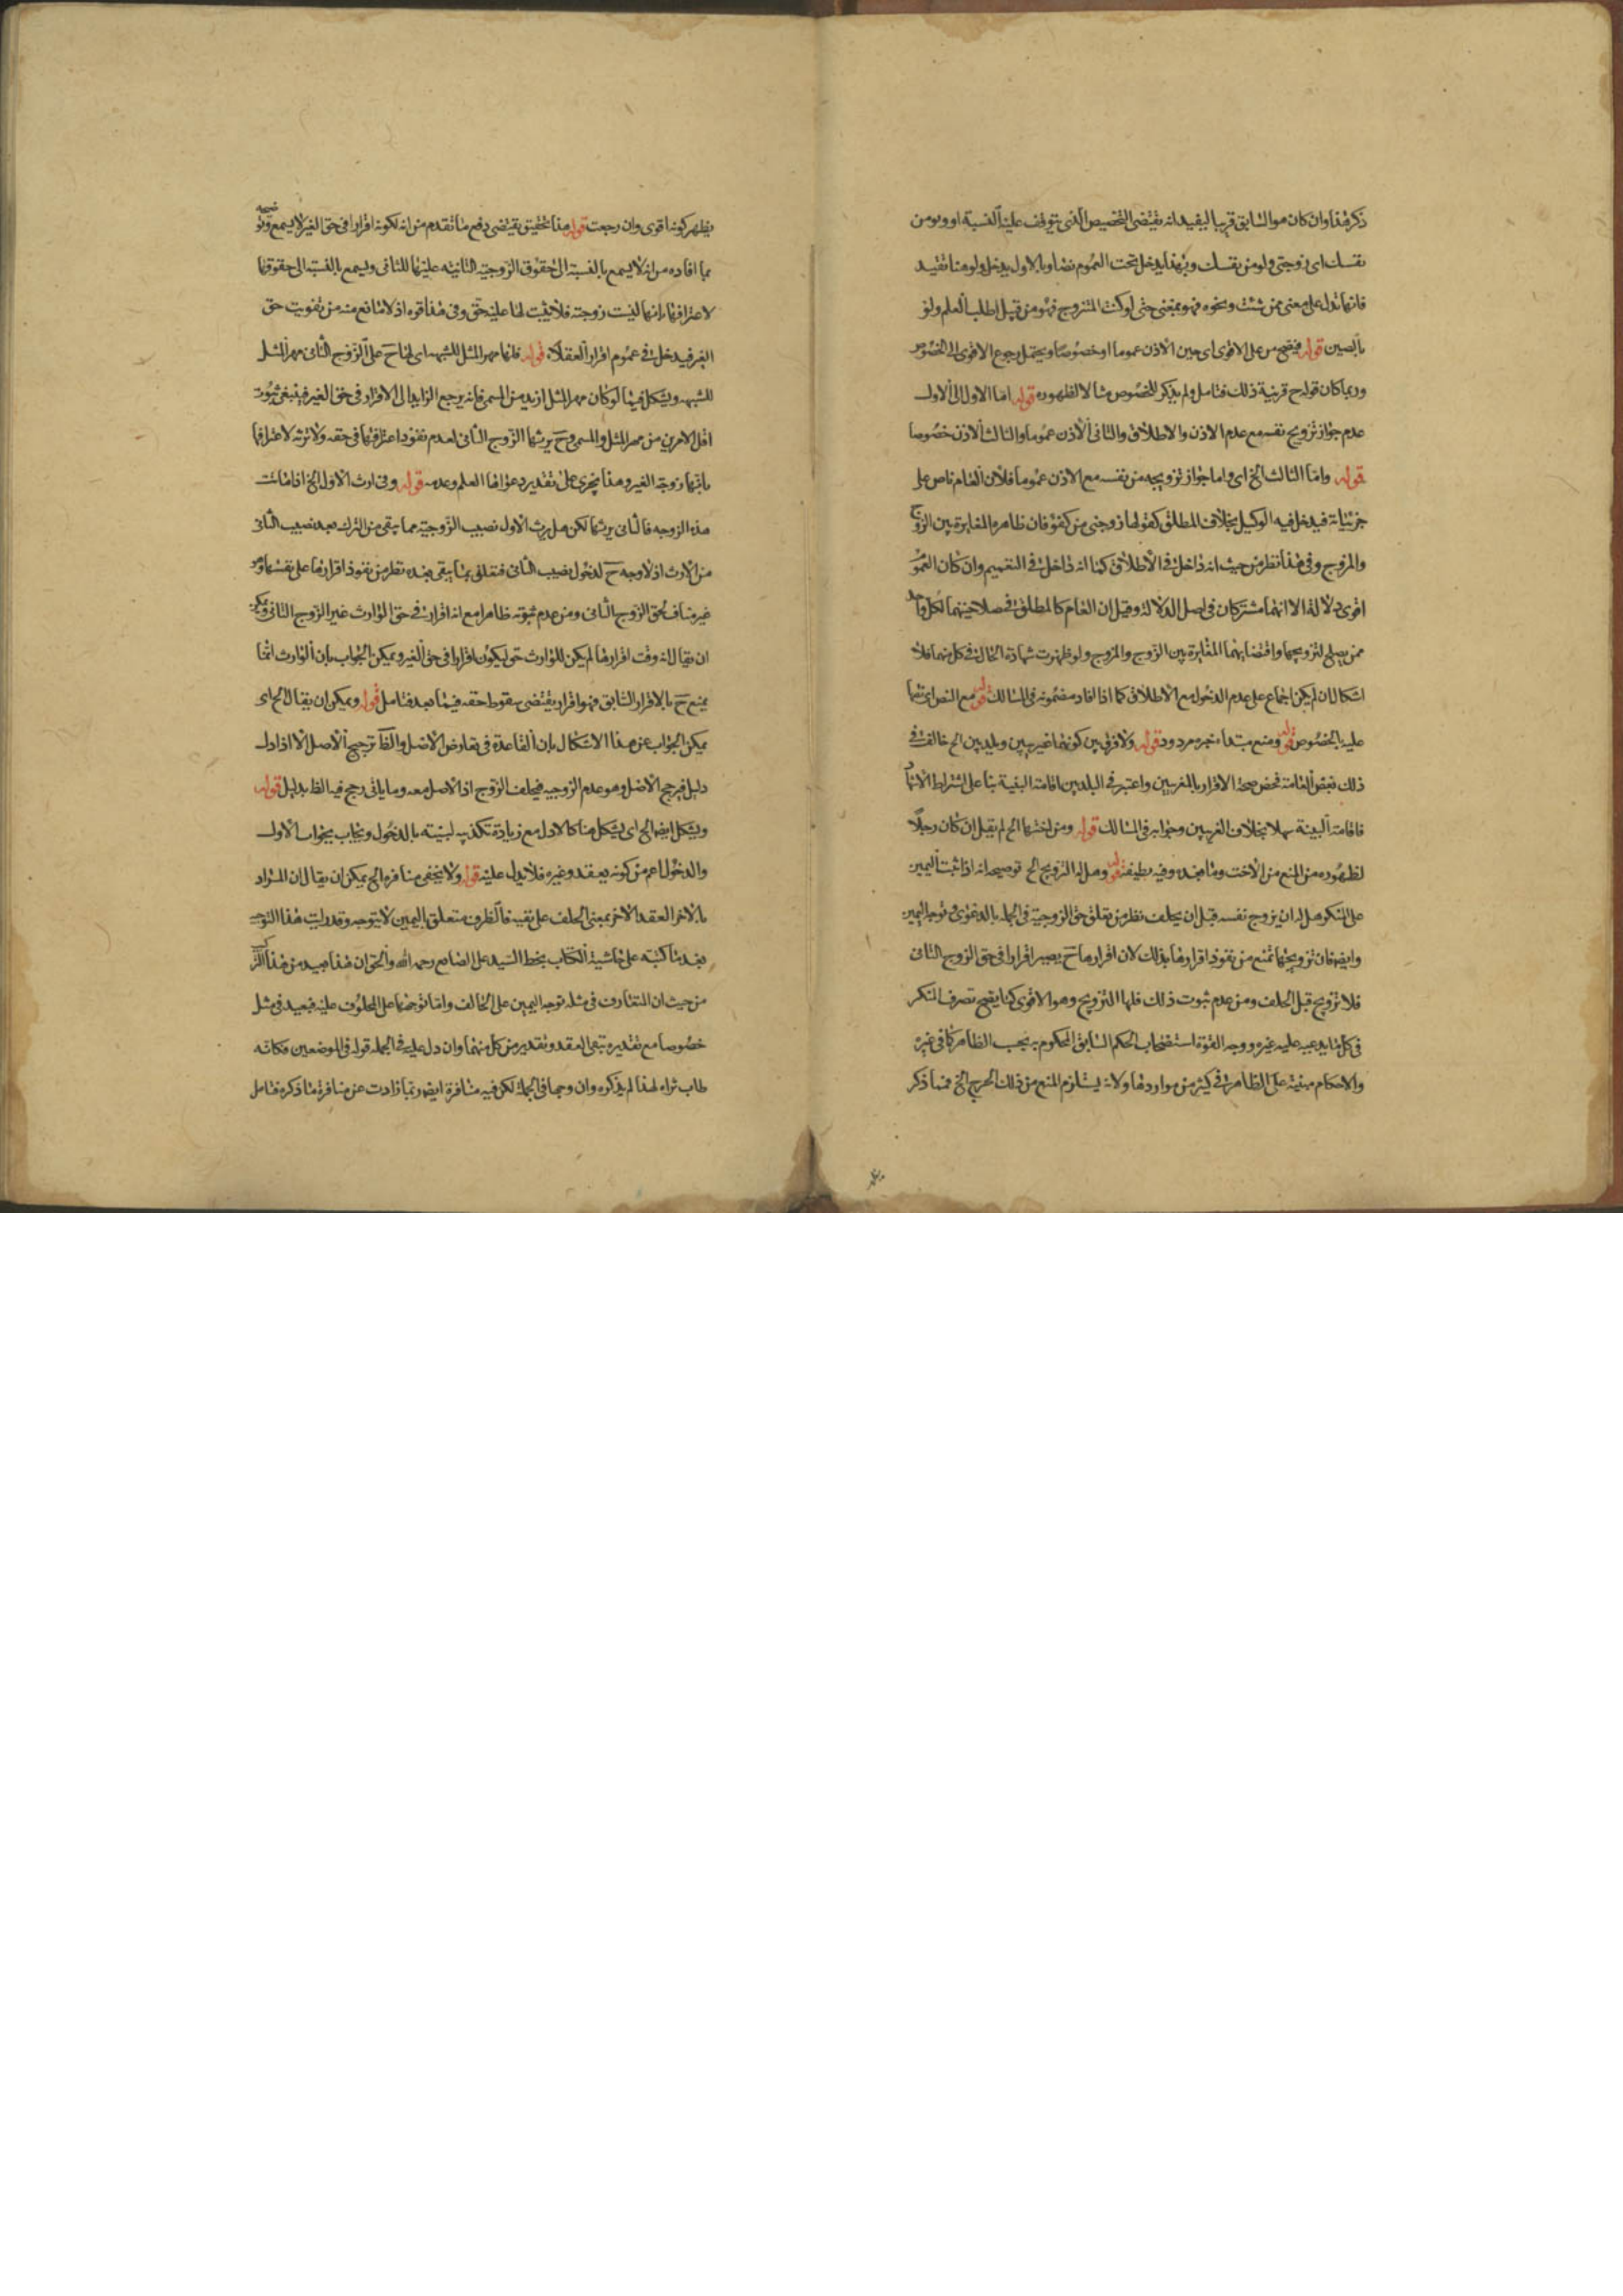 ذكر هذا وان كان هو السابق قريبا ليفيد انه يقتضى التخصيص الذى يتوقف عليه النسبة او ومن
نفسك اى زوجتى ولو من نفسك وبهذا يدخل تحت العموم نصا وبالاول يدخل ولو هنا تفيد
فانها تدل على معنى ممن شئت ونحوه فهو بمعنى حتى لو كنت المتزوج فهو من قبيل اطلب العلم ولو
بالصين قوله فيصح من على الاقوى اى حين الاذن عموما او خصوصا ويحتمل رجوع الاقوى الى الخصوص
وربما كان قوله ح قرينة ذلك فتامل ولم يذكر للخصوص مثالا لظهوره قوله اما الاول الى الاول
عدم جواز تزويج نفسه مع عدم الاذن والاطلاق والثانى الاذن عموما والثالث الاذن خصوصا
قوله واما الثالث الخ اى واما جواز تزويجه من نفسه مع الاذن عموما فلان العام ناص على
جزئياته فيدخل فيه الوكيل بخلاف المطلق كقولها زوجنى من كفو فان ظاهره المغايرة بين الزوج
والمزوج وفى هذا نظر من حيث انه داخل فى الاطلاق كما انه داخل فى التعميم وان كان العموم
اقوى دلالة الا انهما مشتركان فى اصل الدلالة وقيل ان العام كالمطلق فى صلاحيتهما لكل واحد
ممن يصلح لتزويجها واقتضائهما المغايرة بين الزوج والمزوج ولو ظهرت شهادة الحال فى كل منهما فلا
اشكال ان لم يكن اجماع على عدم الدخول مع الاطلاق كما اذا افاد مضمونه فى المسالك قوله مع النص اى نصها
عليه بالخصوص قوله ومنع مبتداء خبره مردود قوله ولا فرق بين كونهما غريبين وبلديين الخ خالف فى
ذلك بعض العامة فخص صحة الاقرار بالغريبين واعتبر فى البلديين اقامة البينة بنا على اشتراط الاشهاد
فاقامة البينة سهلا بخلاف الغريبين وجوابه فى المسالك قوله ومن اختها الخ لم يقل ان كان رجلا
لظهوره من المنع من الاخت وما بعده وفيه لطيفة قوله وهل له التزويج الخ توضيحه انه اذا ثبت اليمين
على المنكر هل له ان يزوج نفسه قبل ان يحلف نظر من تعلق حق الزوجية فى الجملة بالدعوى وتوجه اليمين
وايضا فان تزويجها تمنع من نفوذ اقرارها بذلك لان اقرارها ح يصير اقرارا فى حق الزوج الثانى
فلا تزويج قبل الحلف ومن عدم ثبوت ذلك فلها التزويج وهو الاقوى كما يصح تصرف المنكر
فى كل ما يدعيه عليه غيره ووجه القوة استصحاب الحكم السابق المحكوم به بحسب الظاهر كما فى غيره
والاحكام مبنية على الظاهر فى كثير من مواردها ولانه يستلزم المنع من ذلك الحرج الخ فمما ذكر
يظهر كونه اقوى وان رجعت قوله هذا تحقيق يقتضى دفع ما تقدم من انه لكونه اقرارا فى حق الغير لا يسمع
بما افاده من انه لا يسمع بالنسبة الى حقوق الزوجية الثانية عليها للثانى ويسمع بالنسبة الى حقوقها
لاعترافها بانها ليست زوجته فلا يثبت لها عليه حق وفى هذا قوة اذ لا مانع منه من تفويت حق
الغير فيدخل فى عموم اقرار العقلاء قوله فلها مهر المثل للشبهة اى لها ح على الزوج الثانى مهر المثل
للشبهة ويشكل فيما لو كان مهر المثل ازيد من المسمى فانه يرجع الزايد الى الاقرار فى حق الغير فينبغى ثبوت
اقل الامرين من مهر المثل والمسمى وح يرثها الزوج الثانى لعدم نفوذ اعترافها فى حقه ولا ترثه لاعترافها
بانها زوجة الغير وهذا يجرى على تقدير دعواها العلم وعدمه قوله وفى ارث الاول الخ اذا ماتت
هذه الزوجة فالثانى يرثها لكن هل يرث الاول نصيب الزوجية مما يبقى من الترك بعد نصيب الثانى
من الارث اذ لا وجه ح لدخول نصيب الثانى فتعلق بما يبقى بعده نظر من نفوذ اقرارها على نفسها وهو
غير مناف لحق الزوج الثانى ومن عدم ثبوته ظاهرا مع انه اقرار فى حق الوارث غير الزوج الثانى ويمكن
ان يقال انه وقت اقرارها لم يكن للوارث حق ليكون اقرارا فى حق الغير ويمكن الجواب بان الوارث انما
يمنع ح بالاقرار السابق فهو اقرار يقتضى سقوط حقه فيما بعد فتامل قوله ويمكن ان يقال الخ اى
يمكن الجواب عن هذا الاشكال بان القاعدة فى تعارض الاصل والظاهر ترجيح الاصل الا اذا دل
دليل فيرجح الاصل وهو عدم الزوجية فيحلف الزوج اذ الاصل معه وما ياتى رجح فيه الظاهر بدليل قوله
ويشكل ايضا الخ اى يشكل هنا كالاول مع زيادة تكذيبه لبينته بالدخول ويجاب بجواب الاول
والدخول اعم من كونه بعقد وغيره فلا يدل عليه قوله ولا يخفى منافره الخ يمكن ان يقال ان المراد
بالاخر العقد الاخر بمعنى الحلف على نفيه فالظرف متعلق باليمين لا بتوجه وقد رايت هذا التوجيه
بعد ما كتبه على حاشية الكتاب بخط السيد على الصايغ رحمه الله والحق ان هذا بعيد من هذا التركيب
من حيث ان المتعارف فى مثله توجه اليمين على الحالف واما توجهها على المحلوف عليه فبعيد فى مثل
خصوصا مع تقديره بنفى العقد وتقدير من كل منهما وان دل عليه فى الجملة قوله فى الموضعين فكانه
طاب ثراه لهذا لم يذكره وان وجها فى الجملة لكن فيه منافرة ايضا وربما زادت عن منافرة ما ذكره فتامل